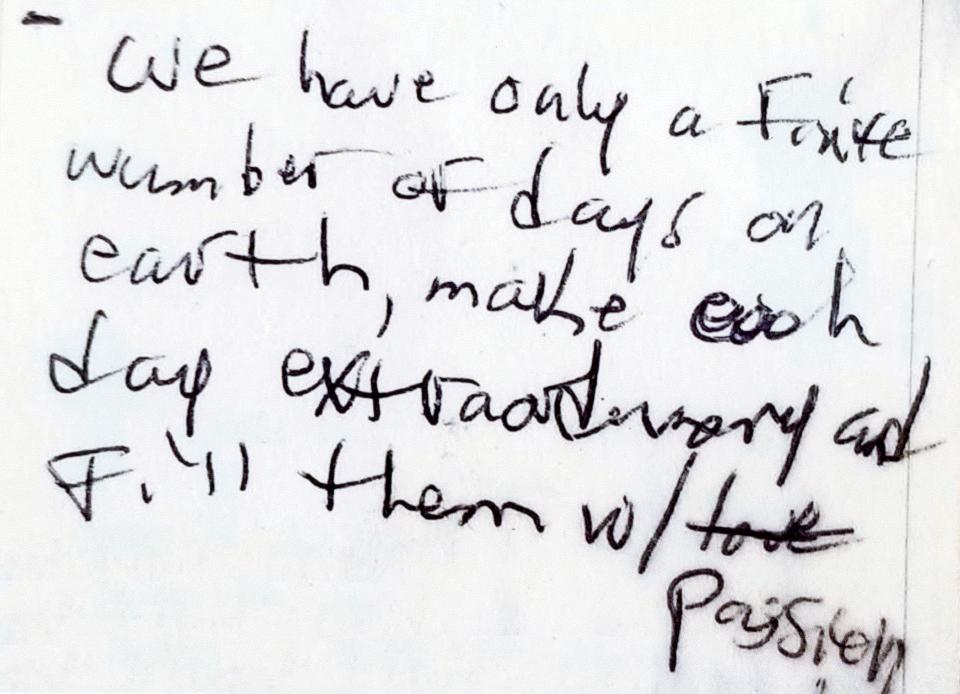 - We have only a Finite
number of days on
earth, make each
day extraordinary and
Fill them w/ love
Passion